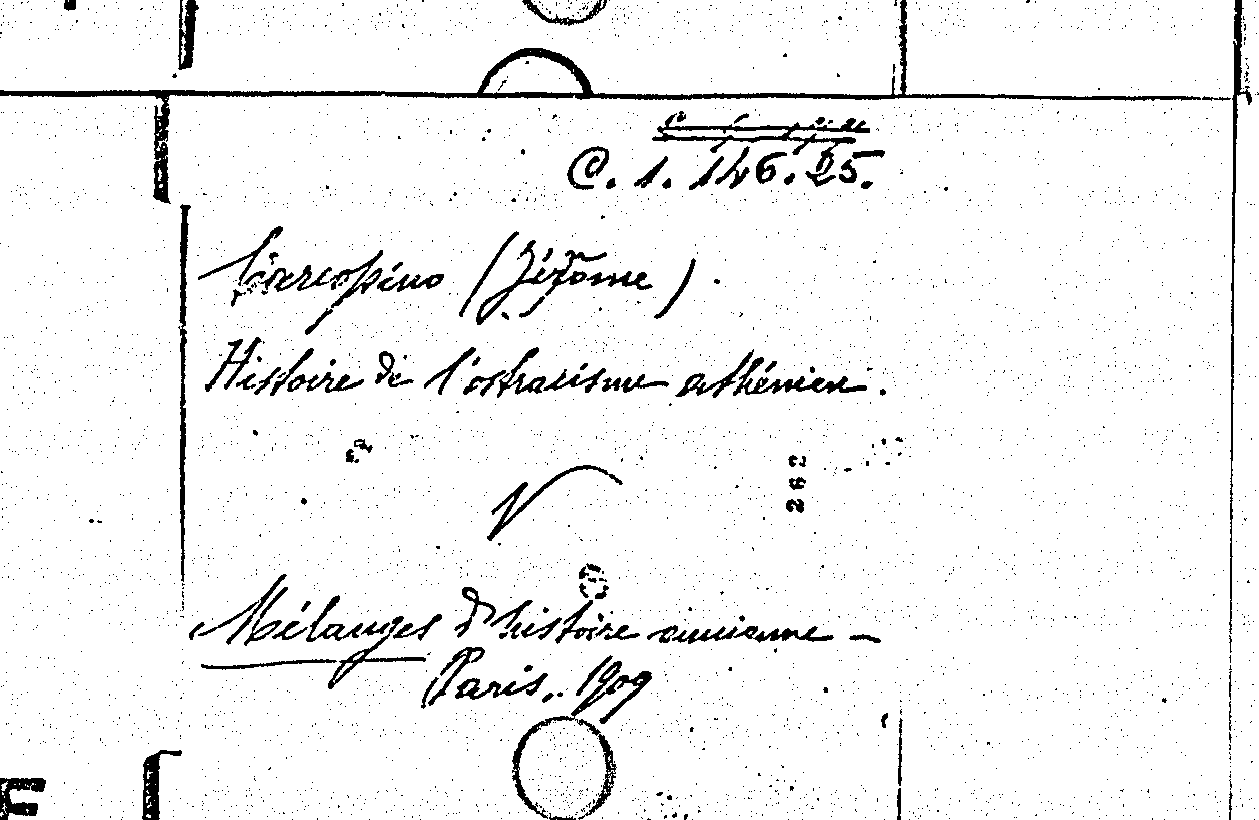 C. 1. 146. 25.
Carcopino (Jérôme).
Histoire de l'ostracisme athénien.
262
Mélanges d'histoire ancienne -
Paris, 1909